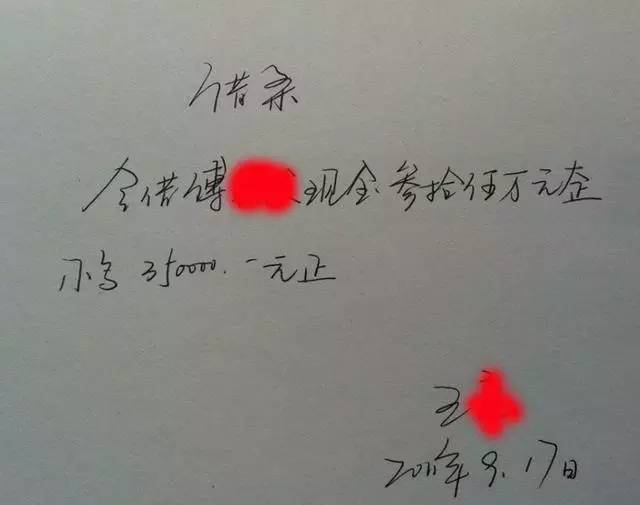 借条
今借傅现金叁拾伍万元整
小写350000.一元正
王
2011年9.17日